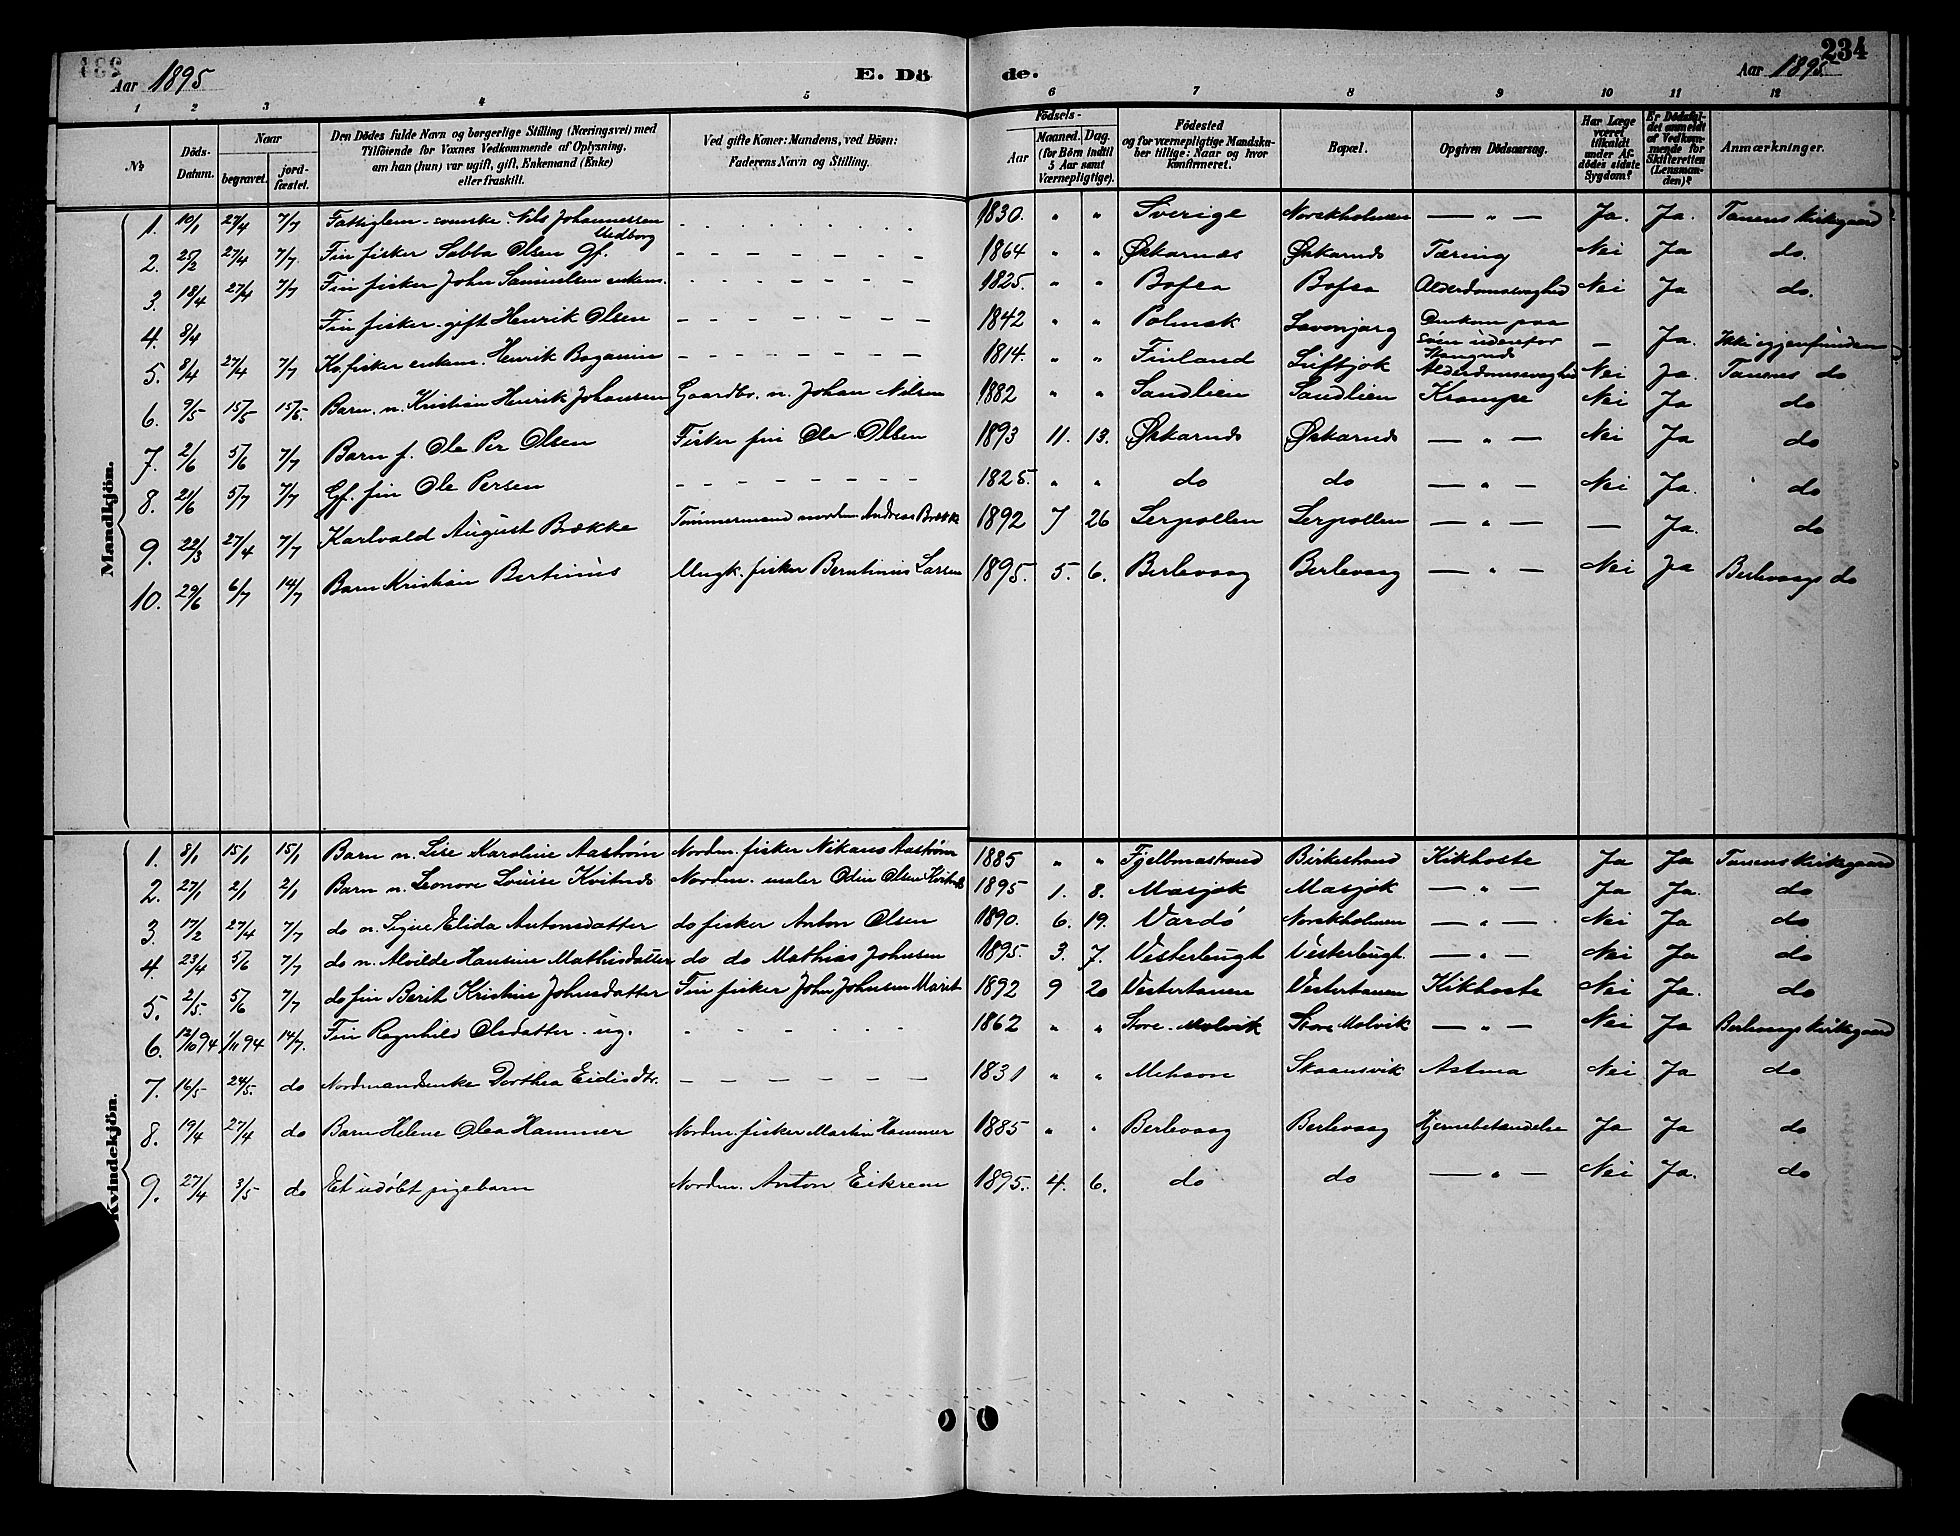 234
Aar 1895
E. Dö
de.
Aar 1895
1 2 3 4 5 6 7 8 9 10 11 12
№
Döds-Datum.
Naar
begravet.
jordfæstet.
Den Dödes fulde Navn og borgerlige Stilling (Næringsvei) med
Tilföiende for Voxnes Vedkommende af Oplysning,
om han (hun) var ugift, gift, Enkemand (Enke)
eller fraskilt.
Ved gifte Koner: Mandens, ved Börn:
Faderens Navn og Stilling.
Födsels-
Aar
Maaned. Dag.
(for Börn indtil
5 Aar samt
Værnepligtige).
Födested
og for værnepligtige Mandskaber tillige: Naar og hvor
konfirmeret.
Bopæl.
Opgiven Dödsaarsag.
Har Læge
været
tilkaldt
under Afdödes sidste
Sygdom?
Er Dödsfaldet anmeldt
af Vedkommende for
Skifteretten
(Lensmanden)?
Anmærkninger.
Mandkjön.
1. 10/1 27/4 7/7 Fattiglem - svenske. Nils Johannessen Vedborg - - - 1830. " " Sverige Norskholmen — " — Ja. Ja. Tanens Kirkegaard
2. 25/2 27/4 7/7 Fin fisker Sabba Olsen Gf. - - - 1864 " " Økkarnæs Økkarnæs Tæring Nei Ja do.
3. 18/4 27/4 7/7 Fin fisker John Samuelsen enkem. - - - 1825. " " Bofsa Bofsa Alderdomssvaghed Nei Ja do.
4. 8/4 Fin fisker - gift Henrik Olsen - - - 1842 " " Polmak Lavonjarg Omkom paa Söen udenfor Stangnæs — Ja. Ikke igjenfunden
5. 8/4 27/4 7/7 Kv. fisker enkem. Henrik Boganin - - - 1814. " " Finland Luftjok Alderdomssvaghed Nei Ja. Tanens do
6. 9/5 15/5 15/5. Barn. n. Kristian Henrik Johansen Gaardbr. n. Johan Nilsen 1882 " " Sandlien Sandlien Krampe Nei Ja do
7. 2/6 5/6 7/7 Barn f. Ole Per Olsen Fisker fin Ole Olsen 1893 11. 13. Økkarnæs Økkarnæs — " — Nei Ja do
8. 21/6 5/7 7/7 Gf. fin Ole Persen - - - 1825. " " do do — " — Nei Ja. do
9. 22/3 27/4 7/7 Karlvald August Brække Tømmermand nordm Andreas Brække 1892 7 26 Lerpollen Lerpollen — " — — Ja. do
10. 29/6 6/7 14/7 Barn Kristian Bertinus Ungk. fisker Berntinus Larsen 1895. 5. 6. Berlevaag Berlevaag — " — Nei Ja Berlevaags do
Kvindekjön.
1. 8/1 15/1 15/1 Barn n. Lise Karoline Aastrøm Nordm. fisker Nikanus Aastrøm 1885 " " Fjeldmastrand Birkestrand Kikhoste Ja Ja Tanens Kirkegaard
2. 27/1 2/1 2/1 Barn n. Leonore Lovise Kvitnæs Nordm. maler Odin Olsen Kvitnæs 1895 1. 8. Masjok Masjok — " — Ja Ja. do
3. 17/2 27/4 7/7 do n. Signe Elida Antonsdatter do fisker Anton Olsen 1890. 6. 19. Vardø Norskholmen — " — Nei Ja do
4. 23/4 5/6 7/7 do n. Alvilde Hansine Mathisdatter do do Mathias Johnsen 1895. 3. 7. Vesterbugt Vesterbugt. — " — Nei Ja do
5. 2/5 5/6 7/7 do fin Berit Kristine Johnsdatter Fin fisker John Johnsen Marit 1892 9 20 Vestertanen Vestertanen Kikhoste Nei Ja. do
6. 12/10 94 1/11 94 14/7. Fin Ragnhild Olsdatter ug. - - - 1862 " " Store-Molvik Store Molvik — " — Nei Ja Berlevaags kirkegaard
7. 16/5 24/5. do Nordmandsenke Dorthea Eidisdtr. - - - 1831 " " Mehavn Skaansvik Astma Nei Ja do
8. 19/4 27/4 do Barn Helene Olea Hammer Nordm. fisker Martin Hammer 1885 " " Berlevaag Berlevaag Hjernebetændelse Ja Ja do
9. 27/4 3/5 do Et udøbt pigebarn Nordm. Anton Eikrem 1895. 4. 6. do do — " — Nei Ja. do